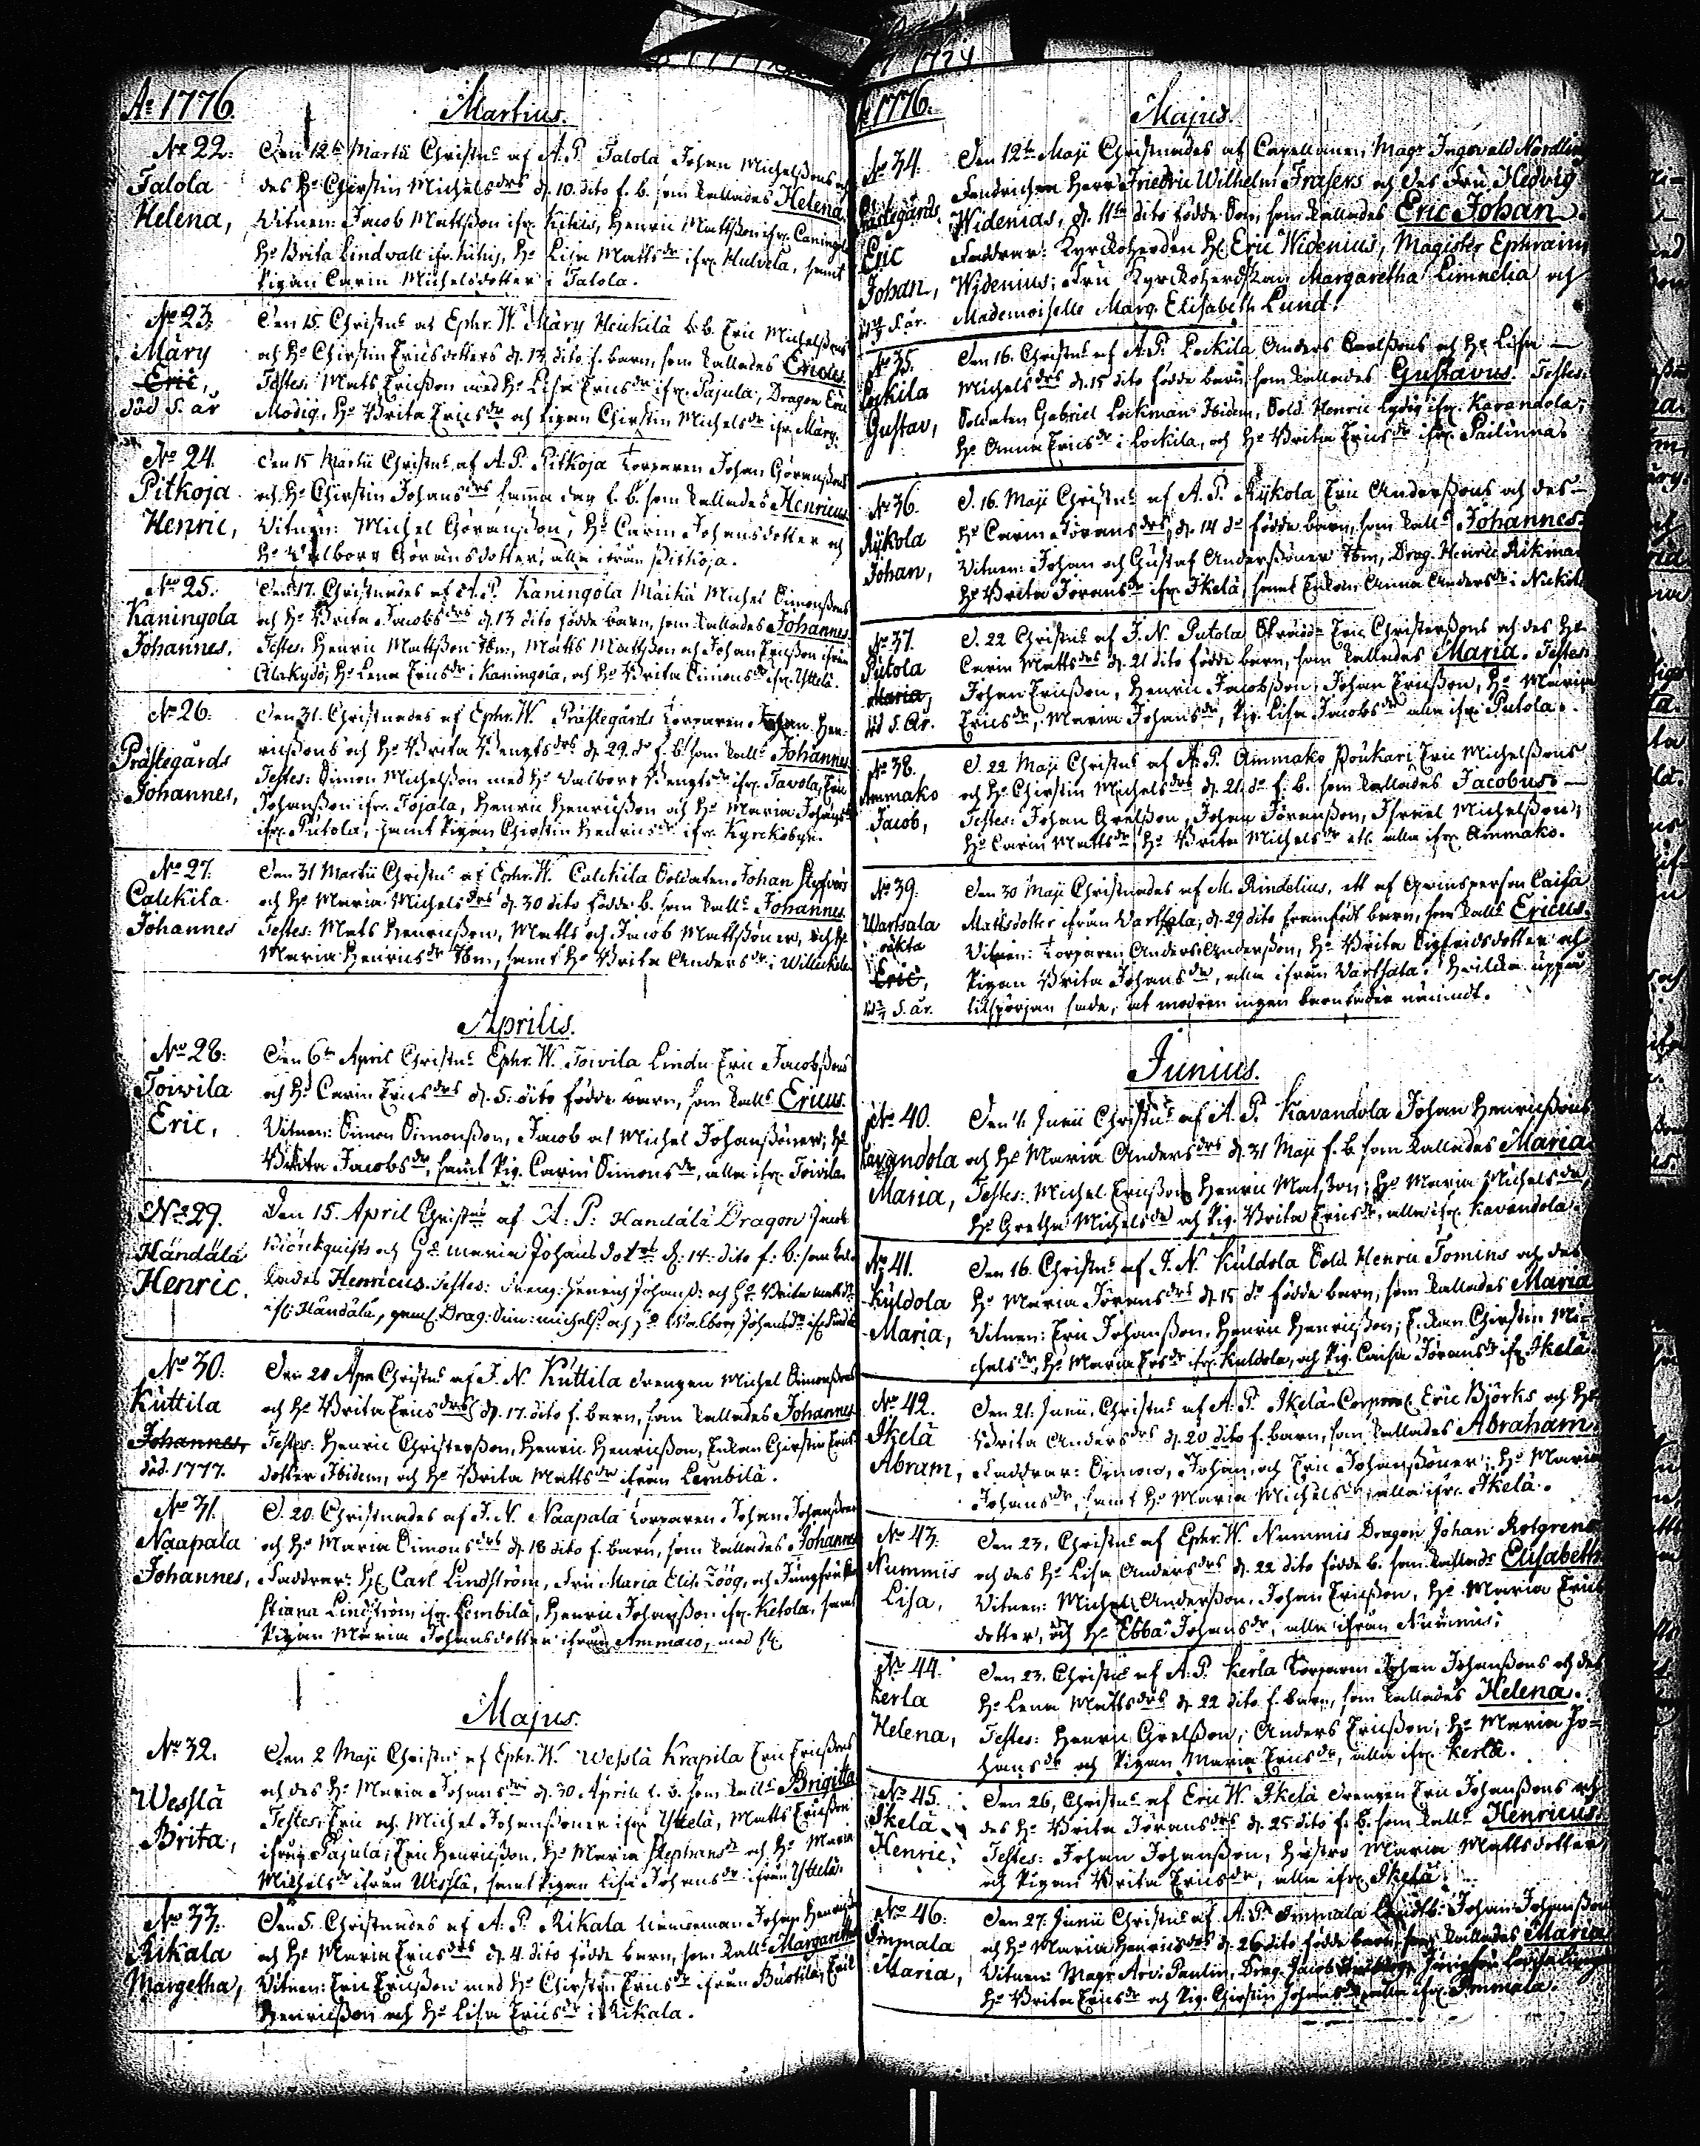 Aº 1776.
Martius.
Nº 22.
Talola
Helena,
Den 12te Martii Christns af A. P. Talola Johan Michelßons och
des Hº Chirstin Michelsdrs d. 10. dito f. b. som kallades Helena.
Witnen: Jacob Mattßon ifr. Henric Mattßon ifr. Caningola
Hº Brita Lindwall ifr. Hº Lisa Mattsdr ifr. Hulvela, samt
Pigan Carin Michelsdotter i Talola.
Nº 23.
Märy
Eric,
död S. år
Den 15. Christns af Ephr. W. Märy Heickilä b. Eric Michelßons
och Hº Chirstin Ericsdotters d. 13. dito f. barn, som kallades Ericus.
Testes: Mats Ericßon med Hº Lisa Ericsdr ifr. Pajula, Dragon Eric
Modig, Hº Brita Ericsdr och Pigan Chirstin Michelsdr ifr. Märy.
Nº 24.
Pitkoja
Henric,
Den 15 Martii Christns af A. P. Pitkoja Torparen Johan Göranßons
och Hº Chirstin Johansdrs samma dag f. b. som kallades Henricus.
Witnen: Michel Göranßon, Hº Carin Johansdotter och
Hº Walborg Göransdotter, alla ifrån Pitkoja.
Nº 25.
Kaningola
Johannes.
Den 17. Christnades af A. P. Kaningola Michel Simonßons
och Hº Brita Jacobsdrs d. 13 dito födde barn, som kallades Johannes.
Testes: Henric Mattßon Ibm, Matts Mattßon och Johan Ericßon ifrån
Alakydö, Hº Lena Ericsdr i Kaningola, och Hº Brita Simonsdr ifr. Yttelä.
Nº 26.
Prästegårds
Johannes,
Den 31. Christnades af Ephr. W. Prästegårds Torparen Johan Hen-
ricßons och Hº Brita Bengtsdrs d. 29. do f. b. som kalls Johannes.
Testes: Simon Michelßon med Hº Walborg Bengtsdr ifr. Tavola, Eric
Johanßon ifr. Tojala, Henric Henricßon och Hº Maria Johansdr
ifr. Putola, samt Pigan Chirstin Henricsdr ifr. Kyrckobyn.
Nº 27.
Calckila
Johannes
Den 31 Martii Christns af Ephr. W. Calckila Soldaten Johan
och Hº Maria Michelsdrs d. 30 dito födde b. som kalls Johannes.
Testes: Mats Henricßon, Matts och Jacob Mattßöner, och Hº
Maria Henricsdr Ibm, samt Hº Brita Andersdr i
Aprilis.
Nº 28.
Toivila
Eric,
Den 6te April Christns Ephr. W. Toivila Lindu Eric Jacobßons
och Hº Carin Ericsdrs d. 5. dito födde barn, som kalls Ericus.
Witnen: Simon Simonßon, Jacob och Michel Johanßöner, Hº
Brita Jacobsdr, samt Pig. Carin Simonsdr, alla ifr. Toivila
Nº 29.
Händälä
Henric.
Den 15. April Christns af A: P: Händälä Dragon Jacob
Björckquists och Hº Maria Johansdotrs d. 14. dito f: b: som kal-
lades Henricus. Testes: Dreng. Henrich Johanß: och Hº Brita
ifr: Händälä, Drag: Sim: michelß: och Hº Walborg Johansdr ifr.
Nº 30.
Kuttila
Johannes,
död. 1777.
Den 20 Apr. Christns af J. N. Kuttila Drengen Michel Simonßons
och Hº Brita Ericsdrs d. 17. dito f. barn, som kallades Johannes
Testes: Henric Christerßon, Henric Henricßon, Enkan Chirstin Erics-
dotter Ibidem, och Hº Brita Mattsdr ifrån Lembilä.
Nº 31.
Naapala
Johannes,
D. 20 Christnades af J. N. Naapala Torparen Johan Johanßons
och Hº Maria Simonsdrs d. 18 dito f. barn, som kallades Johannes
Faddrar: Hr Carl Lindström, Fru Maria Elis: och Jungfru
stiana Lindström ifr. Lembilä, Henric Johanßon ifr. Ketola, samt
Pigan Maria Johansdotter ifrån Ammaco,
Majus.
Nº 32.
Wesslä
Brita,
Den 2 Maji Christns af Ephr. W. Wesslä Krapila Eric Ericßons
och des Hº Maria Johansdrs d. 30 Aprils f. b. som kalls Brigitta
Testes: Eric och Michel Johanßöner ifr. Yttelä, Matts Ericßon
ifrån Pajula; Eric Henricßon, Hº Maria Stephansdr och Hº Maria
Michelsdr ifrån Wesslä, samt Pigan Lisa Johansdr ifrån Yttelä.
Nº 33.
Rikala
Margetha,
Den 5. Christnades af A. P. Rikala Johan Henricßons
och Hº Maria Ericsdrs d. 4 dito födde barn, som kalls Margaretha
Witnen: Eric Ericßon med Hº Chirstin Ericsdr ifrån Bustila, Eric
Henricßon och Hº Lisa Ericsdr i Rikala.
1776.
Majus.
Nº 34.
Prästegårds.
Eric
Johan,
S. år.
Den 12te Maji Christnades af Capellanen Magr Ingevald Nordlin
Fendrichen Herr Friedric Wilhelm Frasers och des Fru Hedvig
Widenias, d. 11te dito födde Son, som kallades Eric Johan.
Faddrar: Kyrckoherden Hr Eric Widenius, Magister Ephraim
Widenius; Fru Kyrckoherdskan Margaretha Limnelia och
Mademoiselle Marg. Elisabeth Lund.
Nº 35.
Lockila
Gustav,
Den 16. Christns af A. P. Lockila Anders Carlßons och Hº Lisa
Michelsdrs d. 15 dito födde barn som kallades Gustavus. Testes:
Soldaten Gabriel Lockman Ibidem, Sold. Henric Lydig ifr. Kavandola,
Hº Anna Ericsdr i Lockila, och Hº Brita Ericsdr ifr. Pailinna.
Nº 36.
Rykola
Johan,
D. 16. Maji Christns af A. P. Rykola Eric Anderßons och des
Hº Carin Göransdrs, d. 14 do födde barn, som kalls Johannes.
Witnen: Johan och Gustaf Anderßöner Ibm, Drag. Henric Rikman
Hº Brita Göransdr ifr. Ikelä, samt Enkan Anna Andersdr i
Nº 37.
Putola
Maria,
S. År.
D. 22 Christns af J. N. Putola Eric Christerßons och des Hº
Carin Mattsdrs d. 21 dito födde barn, som kallades Maria. Testes:
Johan Ericßon, Henric Jacobßon, Johan Ericßon, Hº Maria
Ericsdr, Maria Johansdr, Pig. Lisa Jacobsdr alla ifr. Putola.
Nº 38.
Ammako
Jacob,
D. 22 Maji Christns af A. P. Ammako Poukari Eric Michelßons
och Hº Chirstin Michelsdrs d. 21. do f. b. som kallades Jacobus.
Testes: Johan Grelßon, Johan Göranßon, Israel Michelßon;
Hº Carin Mattsdr, Hº Brita Michelsdr etc alla ifr. Ammako.
Nº 39.
Wartsala
oäkta
Eric,
S. år.
Den 30 Maji Christnades af M. Rindelius, ett af Qvinsperson Caisa
Mattsdotter ifrån Wartsala, d. 29 dito framfödt barn, som kalls Ericus.
Witnen: Torparen Anders Anderßon, Hº Brita Sigfridsdotter och
Pigan Brita Johansdr, alla ifrån Wartsala. Hvilcka uppå
tillspörjan sade, at modren ingen barnfader nämndt.
Junius.
Nº 40.
Kavandola
Maria,
Den 1. Junii Christns af A. P. Kavandola Johan Henricßons
och Hº Maria Andersdrs d. 31 Maji f. b. som kallades Maria
Testes: Michel Ericßon, Henric Matsßon, Hº Maria Michelsdr,
Hº Gretha Michelsdr och Pig. Brita Ericsdr, alla ifr. Kavandola.
Nº 41.
Kuldola
Maria,
Den 16. Christns af J. N. Kuldola Sold. Henric Tomins och des
Hº Maria Göransdrs d. 15 do födde barn, som kallades Maria
Witnen: Eric Johanßon, Henric Henricßon; Enkan Chirstin Mi-
chelsdr, Hº Maria Ersdr ifr. Kuldola, och Pig. Caisa Göransdr ifr. Ikelä.
Nº 42.
Ikelä
Abram,
Den 21. Junii, Christns af A. P. Ikelä Corporal Eric Björks och Hº
Brita Andersdrs d. 20 dito f. barn, som kallades Abraham.
Faddrar: Simon, Johan, och Eric Johanßöner; Hº Maria
Johansdr, samt Hº Maria Michelsdr, alla ifr. Ikelä.
Nº 43.
Nummis
Lisa,
Den 23. Christns af Ephr. W. Nummis Dragon Johan Rotgrens
och des Hº Lisa Andersdrs d. 22 dito födde b. som kallads Elisabeth.
Witnen: Michel Anderßon, Johan Ericßon, Hº Maria Erics
dotter, och Hº Ebba Johansdr, alla ifrån Nummis.
Nº 44.
Kerla
Helena,
Den 23. Christns af A. P. Kerla Torparen Johan Johanßons och des
Hº Lena Mattsdrs d. 22 dito f. barn, som kallades Helena.
Testes: Henric Grelßon, Anders Ericßon; Hº Maria Jo-
hansdr och Pigan Maria Ericsdr, alla ifr. Kerla.
Nº 45.
Ikelä
Henric,
Den 26, Christns af Eric W. Ikelä Drengen Eric Johanßons och
des Hº Brita Göransdrs d. 25 dito f. b. som kalls Henricus.
Testes: Johan Johanßon, Hustro Maria Mattsdotter,
och Pigan Brita Ericsdr, alla ifr. Ikelä.
Nº 46.
Immala
Maria,
Den 27. Junii Christns af A. P. Immala Johan Johanßon
och Hº Maria Henricsdrs d. 26 dito födde barn, som kallades Maria
Witnen: Magr Arv: Paulin, Drag. Jacob
Hº Brita Ericsdr och Pig. Chirstin Johansdr, alla ifr. Immala.